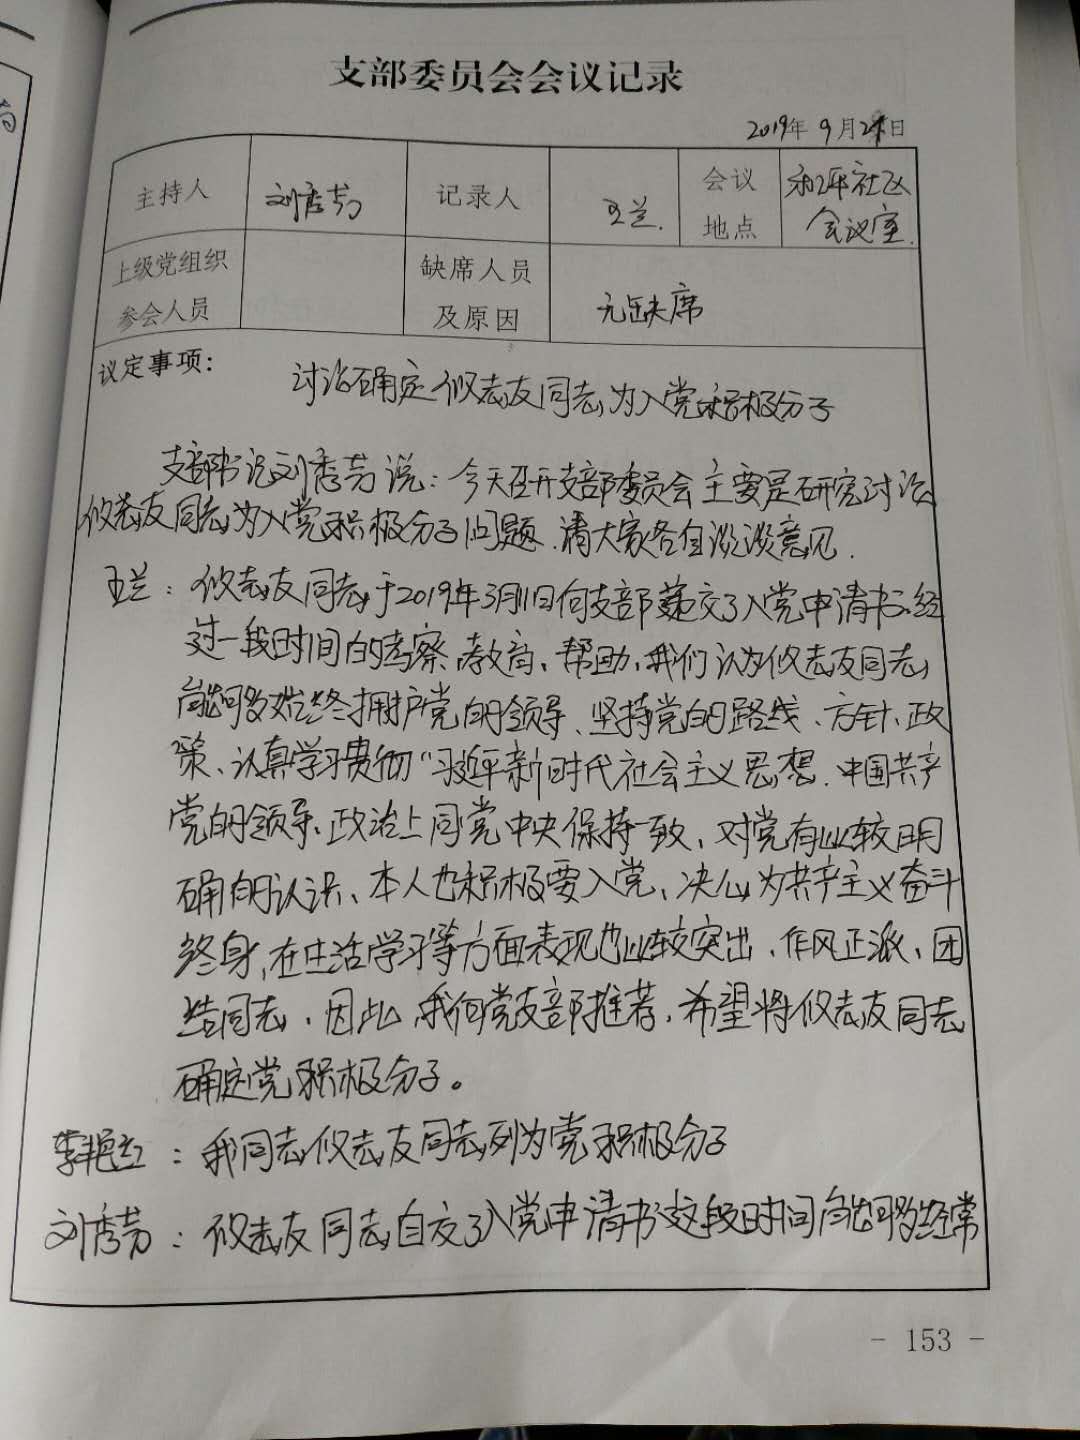 支部委员会会议记录
2019年9月2日
主持人 刘秀芳 记录人 王兰 会议地点 和平社区会议室
上级党组织参会人员 缺席人员及原因 无缺席
议定事项：
讨论确定攸志友同志为入党积极分子
支部书记刘秀芳说：今天召开支部委员会主要是研究讨论
攸志友同志为入党积极分子问题.请大家各自谈谈意见.
王兰：攸志友同志于2019年3月11日向支部递交了入党申请书.经
过一段时间的考察、教育、帮助,我们认为攸志友同志
能够始终拥护党的领导、坚持党的路线、方针、政
策、认真学习贯彻“习近平新时代社会主义思想.中国共产
党的领导、政治上同党中央保持一致、对党有比较明
确的认识、本人也积极要入党、决心为共产主义奋斗
终身,在生活学习等方面表现也比较突出、作风正派、团
结同志、因此,我们党支部推荐,希望将攸志友同志
确定党积极分子。
李艳红：我同志攸志友同志列为党积极分子
刘秀芳：攸志友同志自交了入党申请书这段时间能够经常
- 153 -